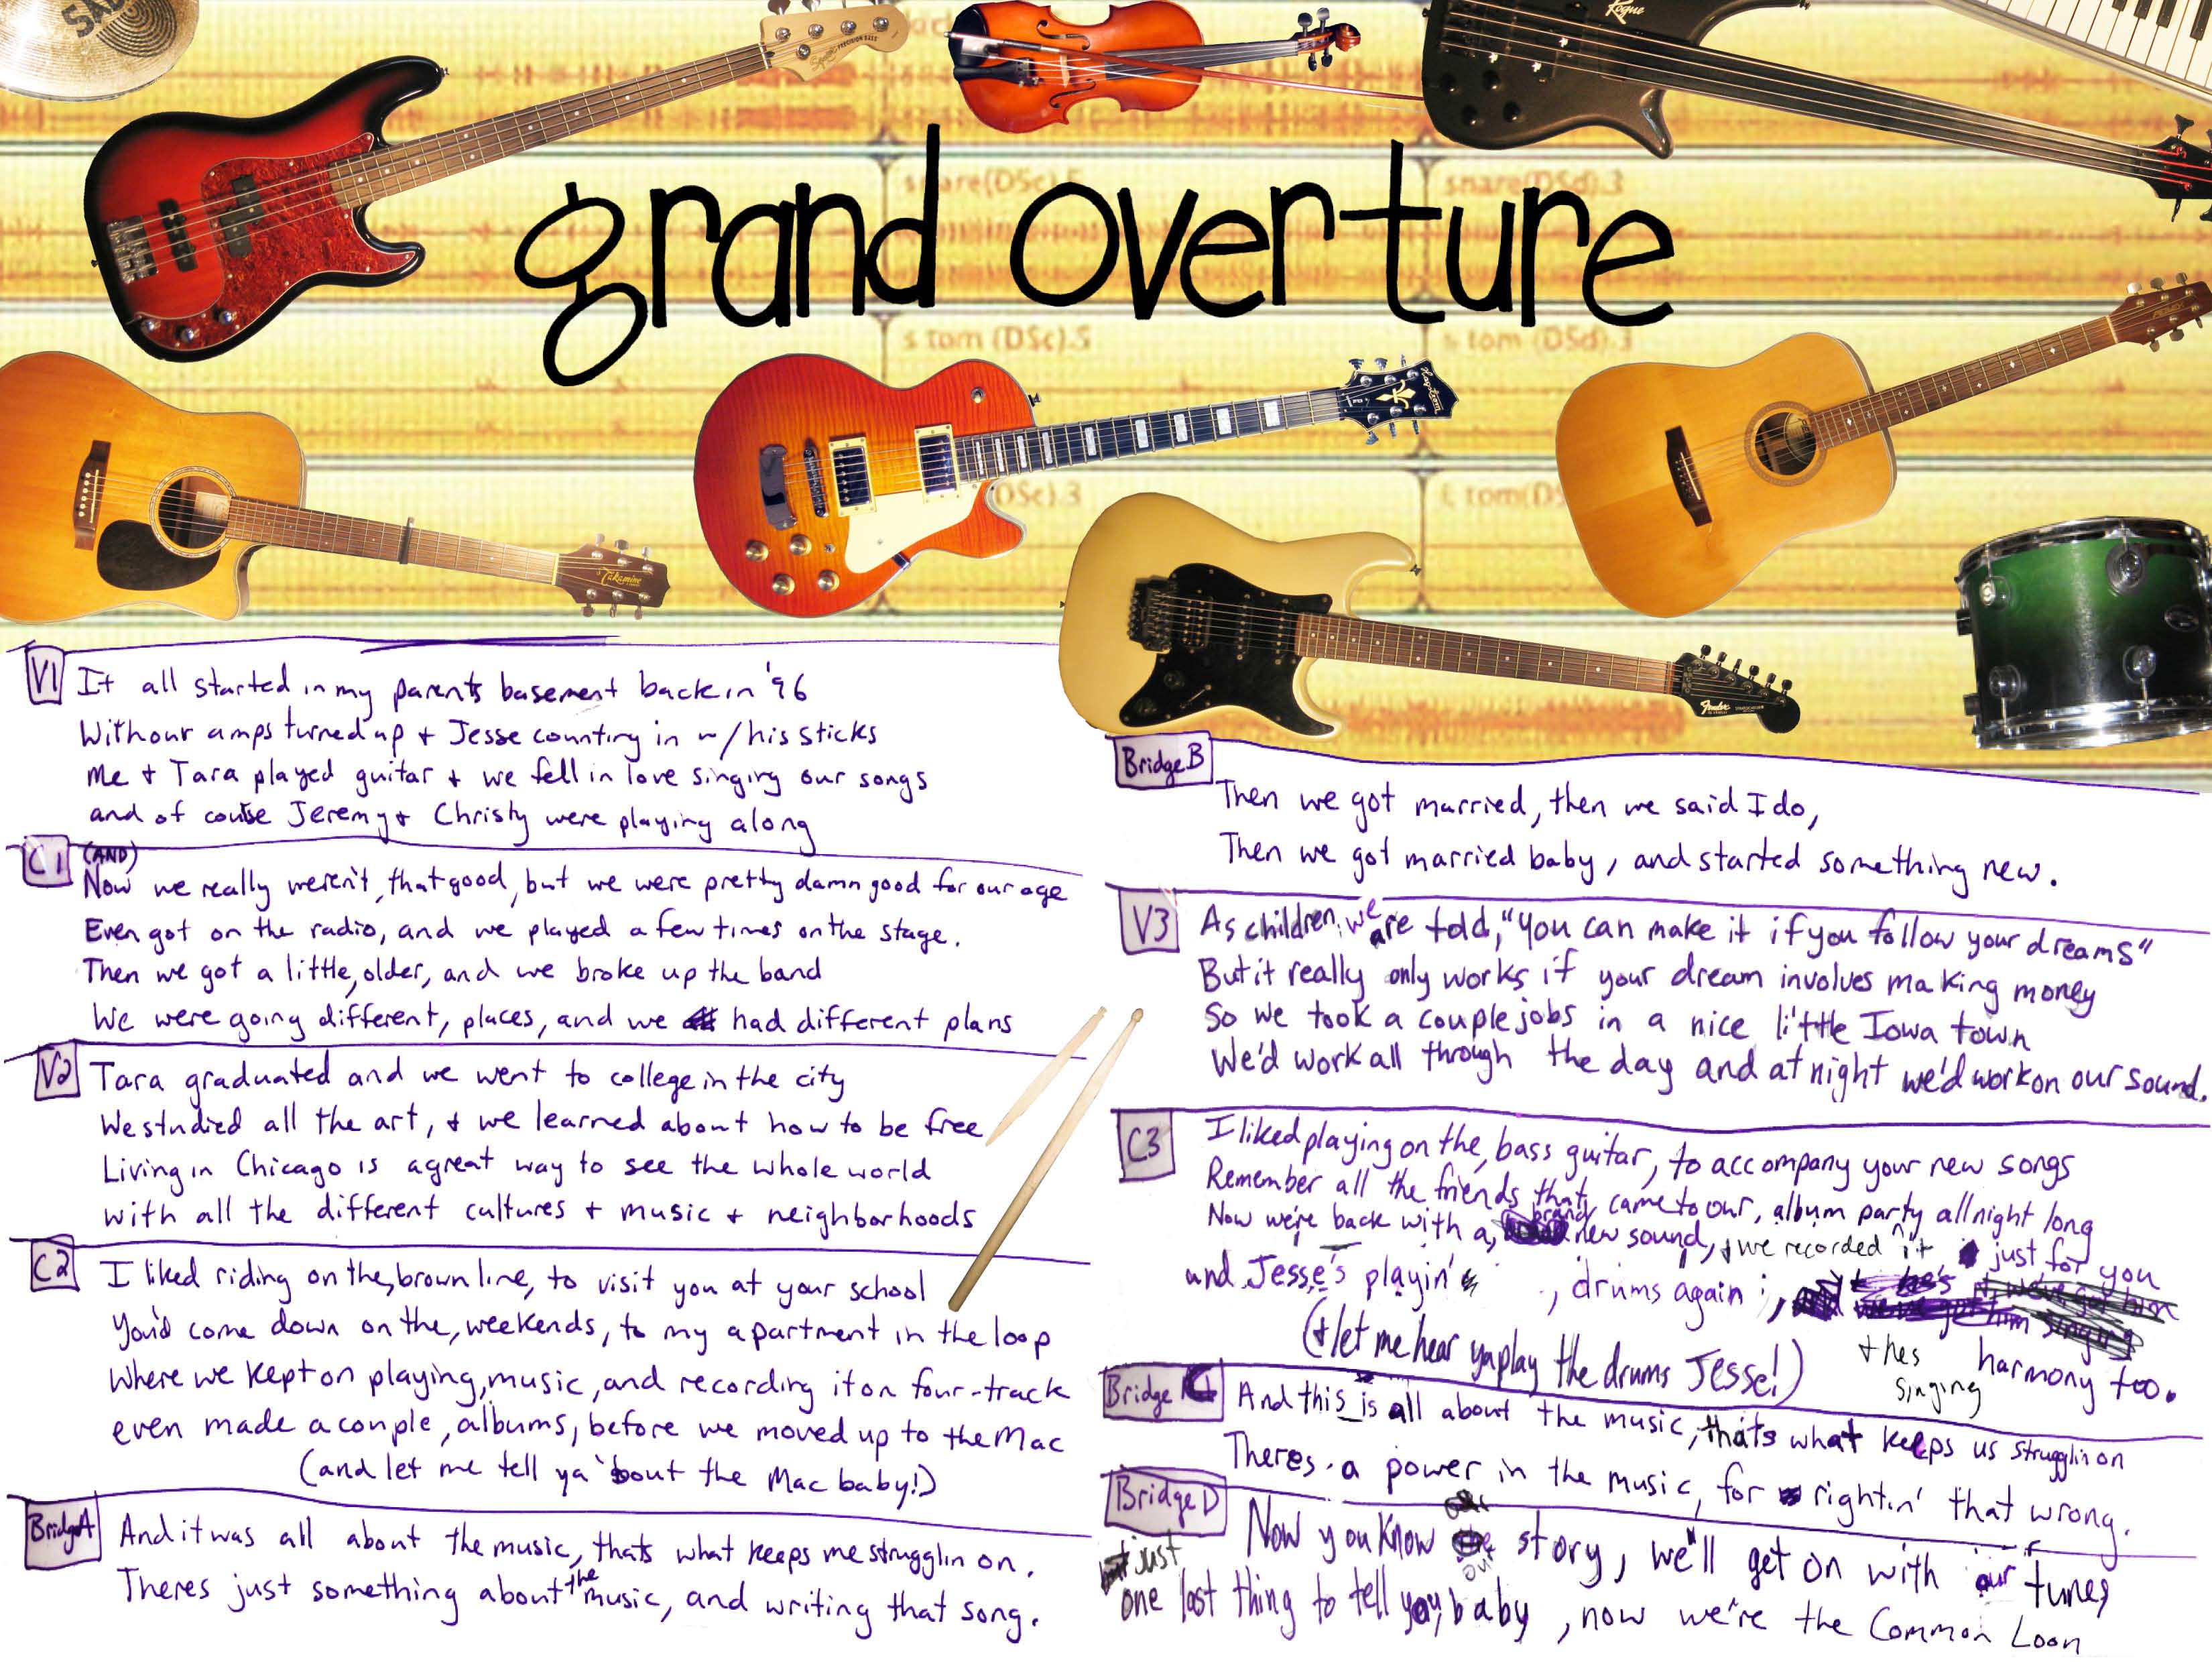 SAB
Squier PRECISION BASS
Rogue
snare(DSc).5
snare(DSd).3
grand overture
s tom (DSc).5
s tom (DSd).3
Hagstrom
DSc).3
l tom(DS
Takamine
Fender
V1 It all started in my parents basement back in '96
With our amps turned up + Jesse counting in w/his sticks
me + Tara played guitar + we fell in love singing our songs
and of course Jeremy + Christy were playing along
C1 (AND)
Now we really weren't, that good, but we were pretty damn good for our age
Even got on the radio, and we played a few times on the stage.
Then we got a little, older, and we broke up the band
We were going different, places, and we had different plans
V2 Tara graduated and we went to college in the city
We studied all the art, + we learned about how to be free
Living in Chicago is a great way to see the whole world
with all the different cultures + music + neighborhoods
C2 I liked riding on the, brown line, to visit you at your school
You'd come down on the, weekends, to my apartment in the loop
where we kept on playing, music, and recording it on four-track
even made a couple, albums, before we moved up to the Mac
(and let me tell ya 'bout the Mac baby!)
Bridge A And it was all about the music, thats what keeps me strugglin on.
Theres just something about the music, and writing that song.
Bridge B
Then we got married, then we said I do,
Then we got married baby, and started something new.
V3 As children, we are told, "you can make it if you follow your dreams"
But it really only works if your dream involves making money
So we took a couple jobs in a nice little Iowa town
We'd work all through the day and at night we'd work on our sound.
C3 I liked playing on the, bass guitar, to accompany your new songs
Remember all the friends that, came to our, album party all night long
Now we're back with a, brand new sound, + we recorded it just for you
and Jesse's playin' , drums again ;,
+ hes singing harmony too.
(+ let me hear ya play the drums Jesse!)
Bridge C And this is all about the music, thats what keeps us strugglin on
Theres a power in the music, for rightin' that wrong.
Bridge D Now you know our story, we'll get on with our tunes
just one last thing to tell you, baby, now we're the Common Loon